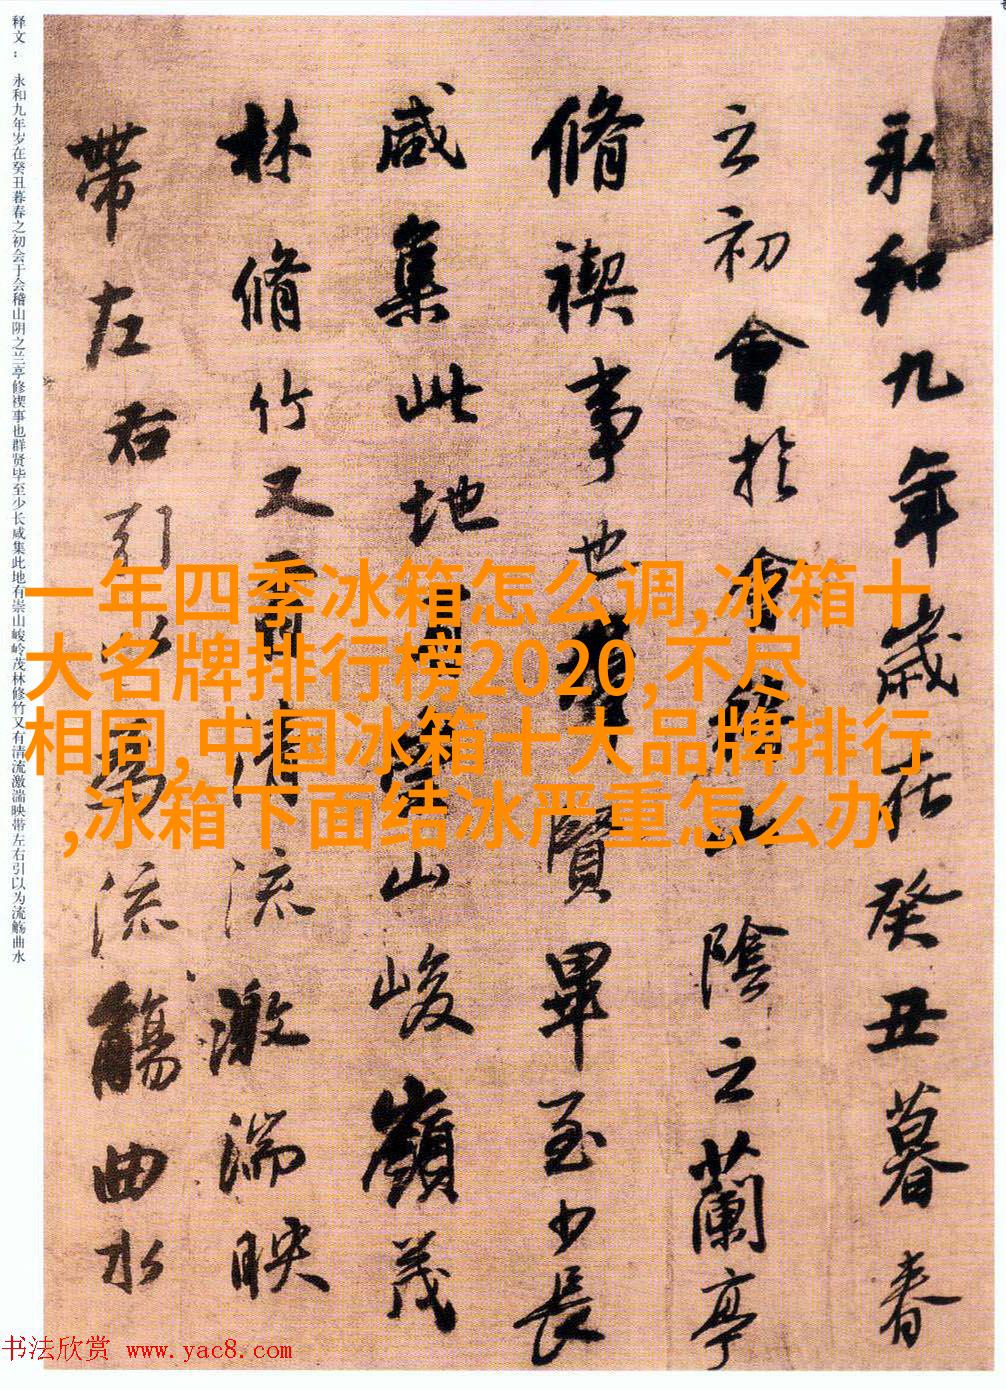 永和九年歲在癸丑暮春
之初會於會稽山陰之蘭亭
脩禊事也群賢畢至少長
咸集此地
山峻嶺茂
林脩竹又有清流激湍映
帶左右引以為流觴曲水
释文： 永和九年岁在癸丑暮春之初会于会稽山阴之兰亭修禊事也群贤毕至少长咸集此地有崇山峻岭茂林修竹又有清流激湍映带左右引以为流觞曲水
一年四季冰箱怎么调,冰箱十
大名牌排行榜2020,不尽
相同,中国冰箱十大品牌排行
,冰箱下面结冰严重怎么办
书法欣赏 www.yac8.com